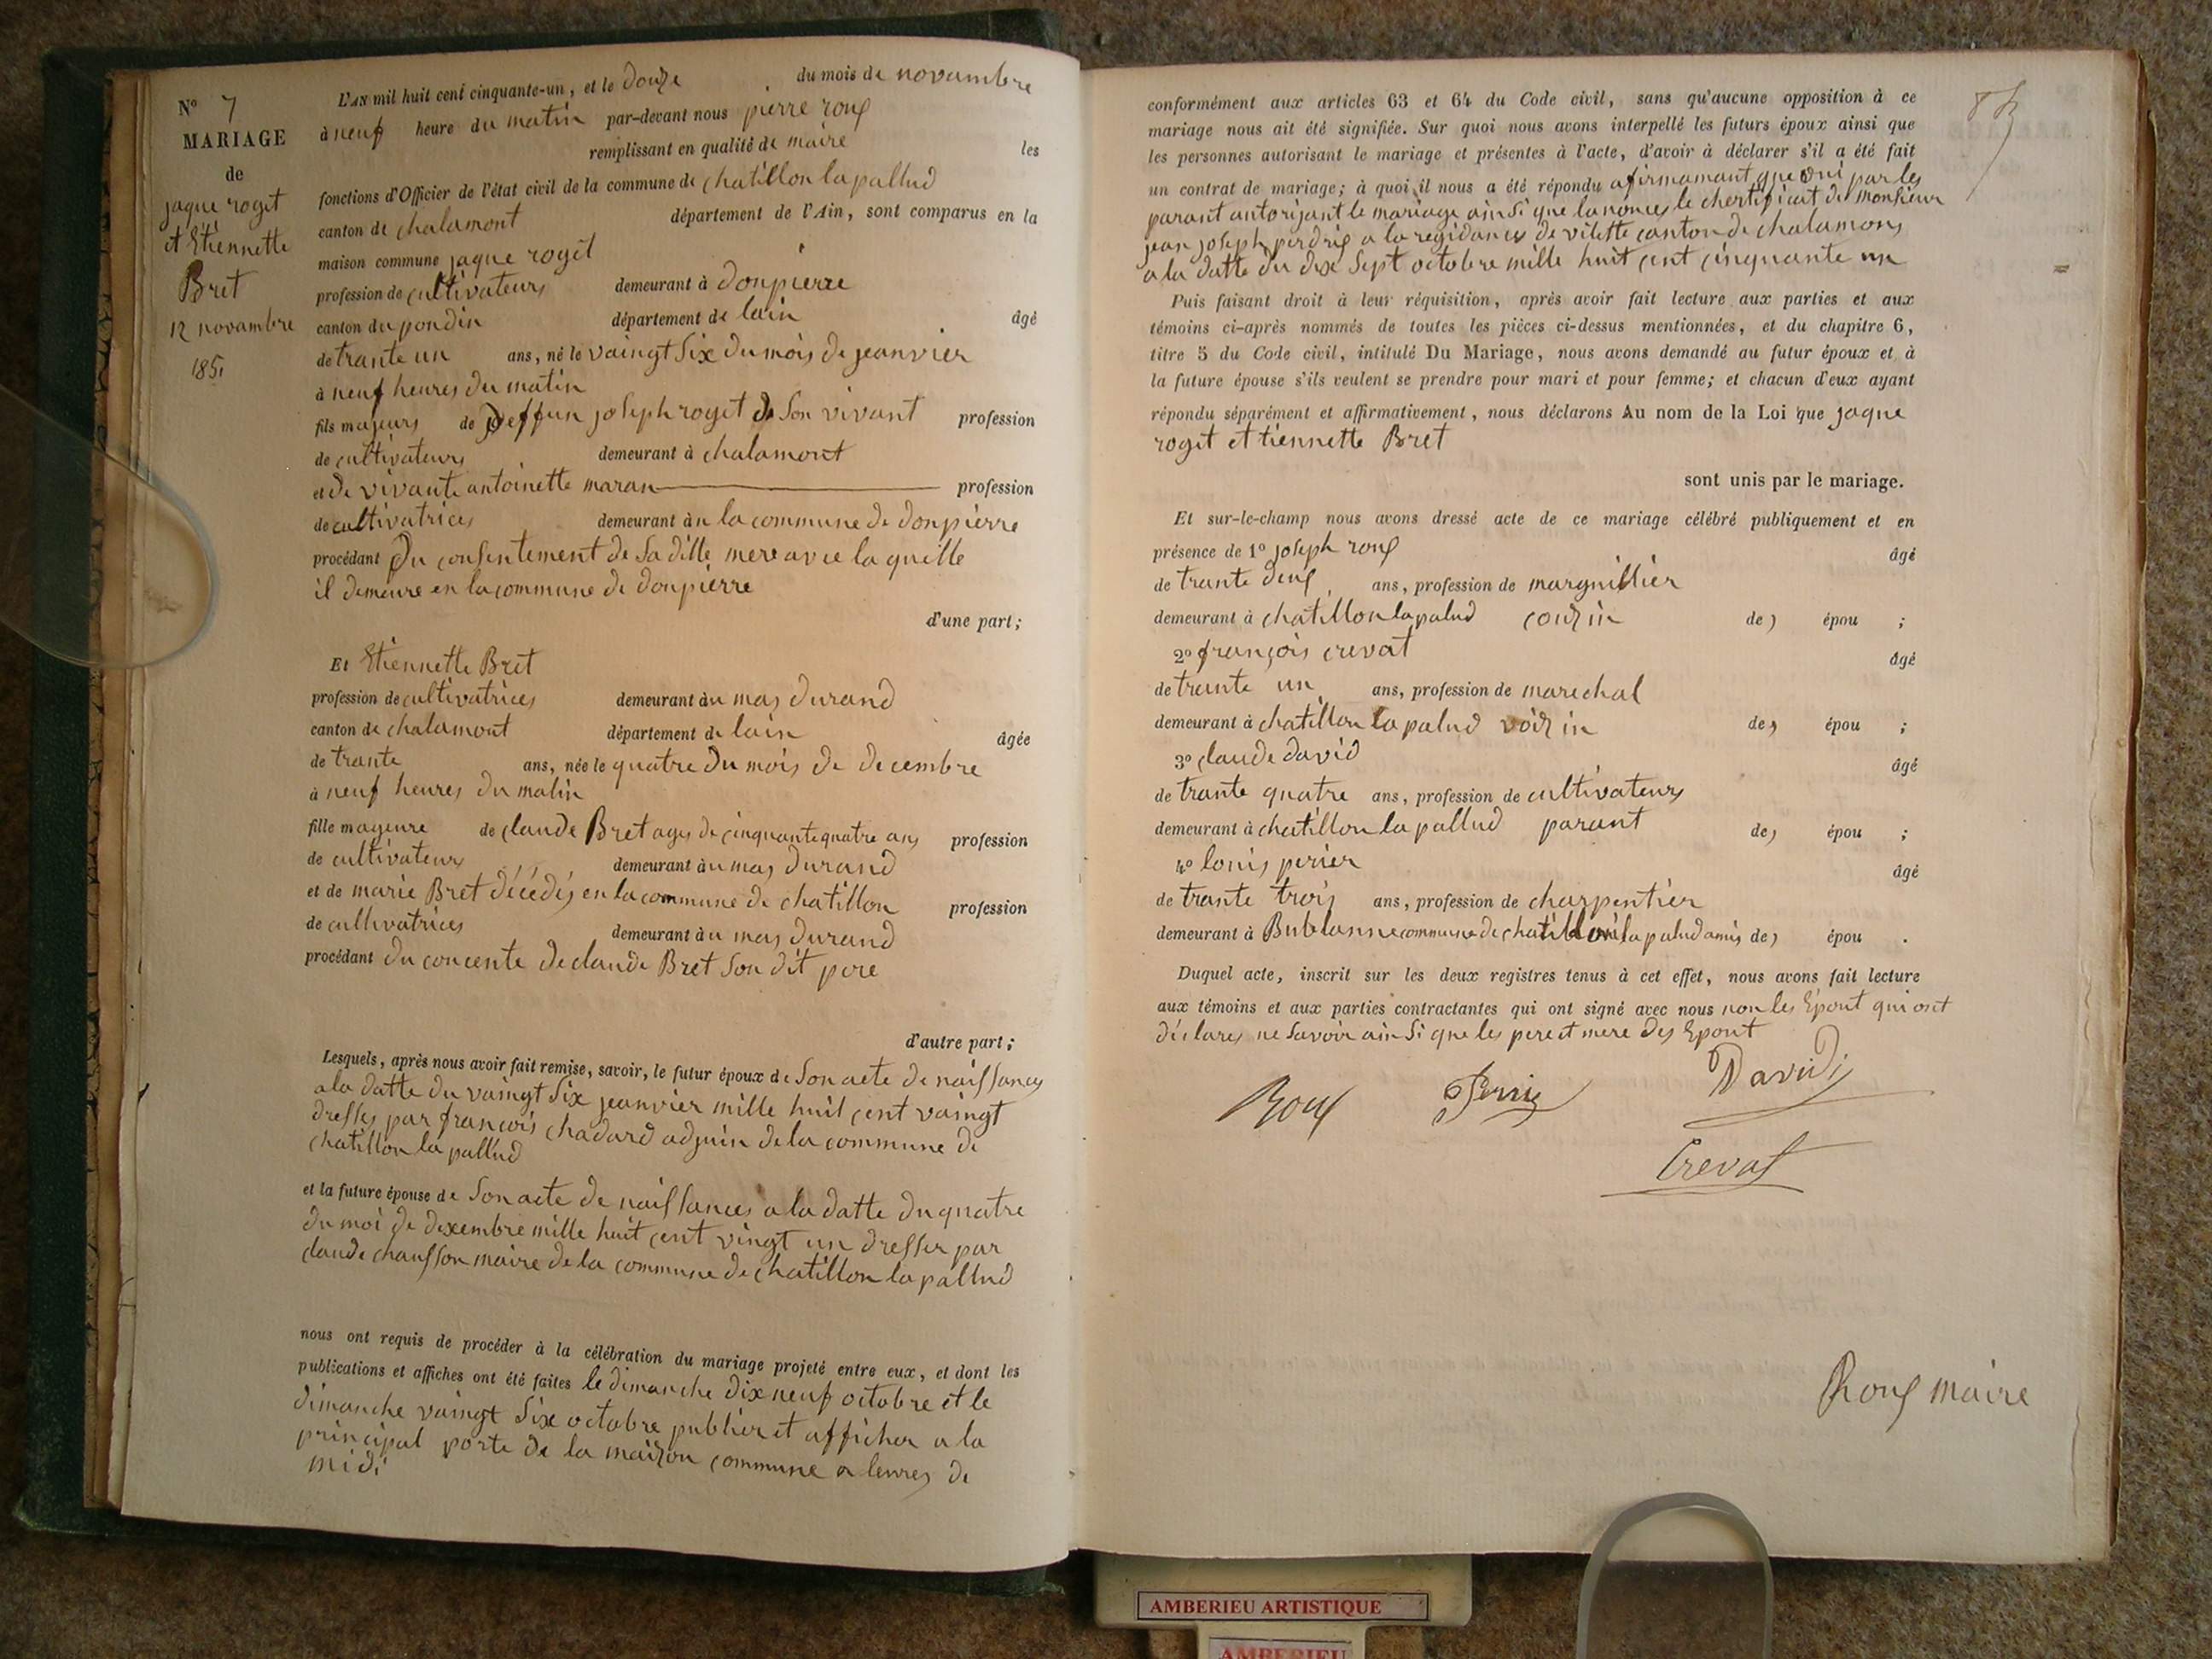 N° 7
MARIAGE
de
jaque roget
et Etiennette
Bret
12 novambre
1851
L'AN mil huit cent cinquante-un, et le douze du mois de novambre
à neuf heure du matin par-devant nous pierre roux
remplissant en qualité de maire les
fonctions d'Officier de l'état civil de la commune de chatillon la pallud
canton de chalamont département de l'Ain, sont comparus en la
maison commune jaque roget
profession de cultivateurs demeurant à donpierre
canton du pondin département de lain âgé
de trante un ans, né le vaingt six du mois de jeanvier
à neuf heures du matin
fils majeurs de deffun joseph roget de son vivant profession
de cultivateurs demeurant à chalamont
et de vivante antoinette maran profession
de cultivatrices demeurant àn la commune de donpierre
procédant du consentement de sa ditte mere avec la quelle
il demeure en la commune de donpierre
d'une part;
Et Etiennette Bret
profession de cultivatrices demeurant àu mas durand
canton de chalamont département de lain âgée
de trante ans, née le quatre du mois de decembre
à neuf heures du matin
fille mageure de claude Bret ages de cinquante quatre ans profession
de cultivateurs demeurant àu mas durand
et de marie Bret décédés en la commune de chatillon profession
de cultivatrices demeurant àu mas durand
procédant du concente de claude Bret son dit pere
d'autre part;
Lesquels, après nous avoir fait remise, savoir, le futur époux de son acte de naissances
a la datte du vaingt six jeanvier mille huit cent vaingt
dresses par francois chadard adjuin de la commune de
chatillon la pallud
et la future épouse de son acte de naissances a la datte du quatre
du moi de dexembre mille huit cent vingt un dresser par
claude chausson maire de la commune de chatillon la pallud
nous ont requis de procéder à la célébration du mariage projeté entre eux, et dont les
publications et affiches ont été faites le dimanche dix neuf octobre et le
dimanche vaingt six octobre publier et afficher a la
principal porte de la maizon commune a leures de
midi
conformément aux articles 63 et 64 du Code civil, sans qu'aucune opposition à ce
mariage nous ait été signifiée. Sur quoi nous avons interpellé les futurs époux ainsi que
les personnes autorisant le mariage et présentes à l'acte, d'avoir à déclarer s'il a été fait
un contrat de mariage; à quoi il nous a été répondu afirmamant que oui par les
parant autorizant le mariage ainsi que lanonces le chertificat de monsieur
jean joseph perdrix a la rezidances de vilette canton de chalamons
a la datte du dix sept octobre mille huit cent cinquante un
Puis faisant droit à leur réquisition, après avoir fait lecture aux parties et aux
témoins ci-après nommés de toutes les pièces ci-dessus mentionnées, et du chapitre 6,
titre 5 du Code civil, intitulé Du Mariage, nous avons demandé au futur époux et à
la future épouse s'ils veulent se prendre pour mari et pour femme; et chacun d'eux ayant
répondu séparément et affirmativement, nous déclarons Au nom de la Loi que jaque
roget et tiennette Bret
sont unis par le mariage.
Et sur-le-champ nous avons dressé acte de ce mariage célébré publiquement et en
présence de 1° joseph roux âgé
de trante deux ans, profession de marguillier
demeurant à chatillon la palud couzin des épou ;
2° françois crevat âgé
de trante un ans, profession de marechal
demeurant à chatillon la palud voizin des épou ;
3° claude david âgé
de trante quatre ans, profession de cultivateurs
demeurant à chatillon la pallud parant des épou ;
4° louis perier âgé
de trante trois ans, profession de charpentier
demeurant à Bublanne commune de chatillon la palud amis des épou .
Duquel acte, inscrit sur les deux registres tenus à cet effet, nous avons fait lecture
aux témoins et aux parties contractantes qui ont signé avec nous non les Epout qui ont
déclares ne savoir ainsi que les pere et mere des Epout
Roux Perrier David
Crevat
Roux maire
AMBERIEU ARTISTIQUE
AMBERIEU